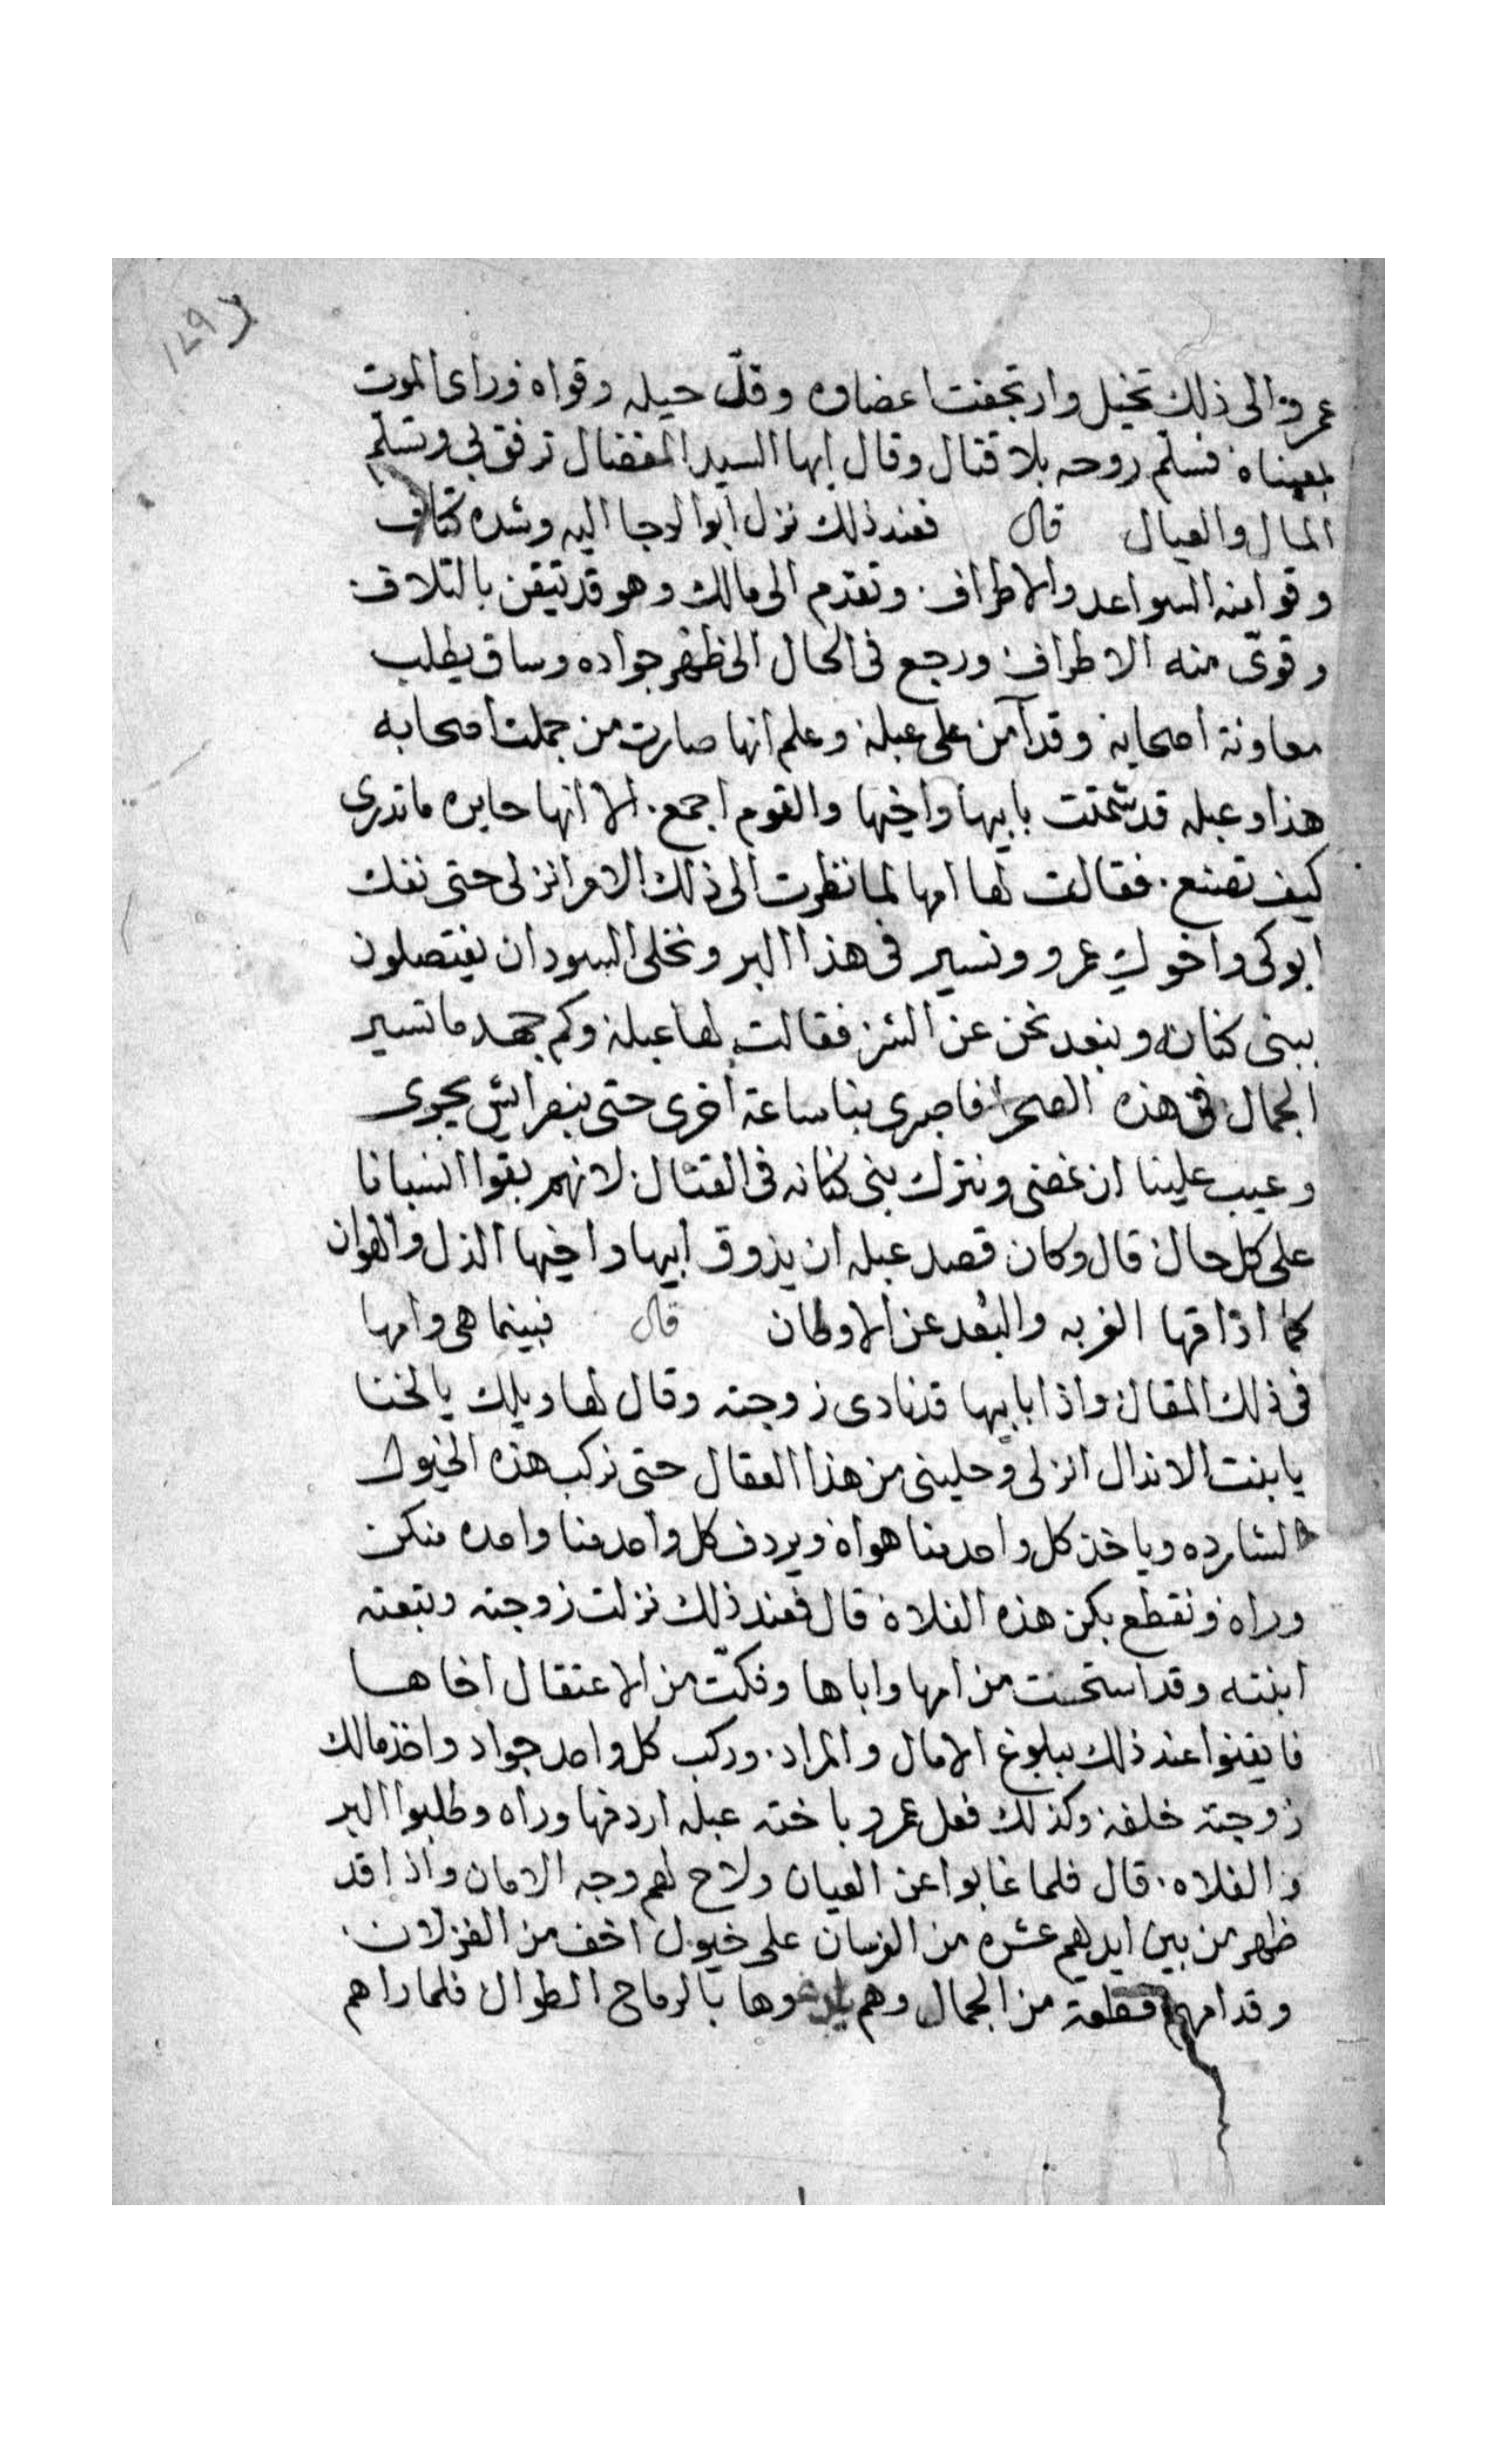 عمرو الى ذلك تخيل وارتجفت اعضاوه وقلّ حيله وقواه وراى الموت
بعيناه فسلم روحه بلا قتال وقال ايها السيد المفضال ترفق بى وتسلّم
المال والعيال قال فعند ذلك نزل ابو الدجا اليه وشده كتاف
وقوا منه السواعد والاطراف وتقدم الى مالك وهو قد تيقن بالتلاف
وقوّى منه الاطراف ورجع فى الحال الى ظهر جواده وساق يطلب
معاونة اصحابه وقد آمن على عبلة وعلم انها صارت من جملت اصحابه
هذا وعبله قد شمتت بابيها واخيها والقوم اجمع الا انها حايره ما تدرى
كيف تصنع فقالت لها امها لما نظرت الى ذلك الامر انزلى حتى نفك
ابوكى واخوك عمرو ونسير فى هذا البر ونخلى السودان يفتصلون
ببنى كنانه ونبعد نحن عن الشر فقالت لها عبلة وكم جهد ما تسير
الجمال فى هذه الصحرا فاصبرى بنا ساعة اخرى حتى ننصر ايش يجرى
وعيب علينا ان نمضى ونترك بنى كنانه فى القتال لانهم بقوا انسبانا
على كل حال قال وكان قصد عبله ان يذوق ابيها واخيها الذل والهوان
كما اذاقها الغربه والبُعد عن الاوطان قال فبينما هى وامها
فى ذلك المقال واذا بابيها قد نادى زوجته وقال لها ويلك يالخنا
يا بنت الاندال انزلى وحلينى من هذا العقال حتى نركب هذه الخيول
الشارده وياخذ كل واحد منا هواه ويردف كل واحد منا واحده منكن
وراه ونقطع بكن هذه الفلاة قال فعند ذلك نزلت زوجته وتبعته
ابنته وقد استحت من امها واباها وفكّت من الاعتقال اخاها
فايقنوا عند ذلك ببلوغ الامال والمراد وركب كل واحد جواد واخذ مالك
زوجته خلفه وكذلك فعل عمرو باخته عبله اردفها وراه وطلبوا البر
والفلاه قال فلما غابوا عن العيان ولاح لهم وجه الامان واذا قد
ظهر من بين ايديهم عشره من الفرسان على خيول اخف من الغزلان
وقدامهم قطعة من الجمال وهم بالرماح الطوال فلما راهم